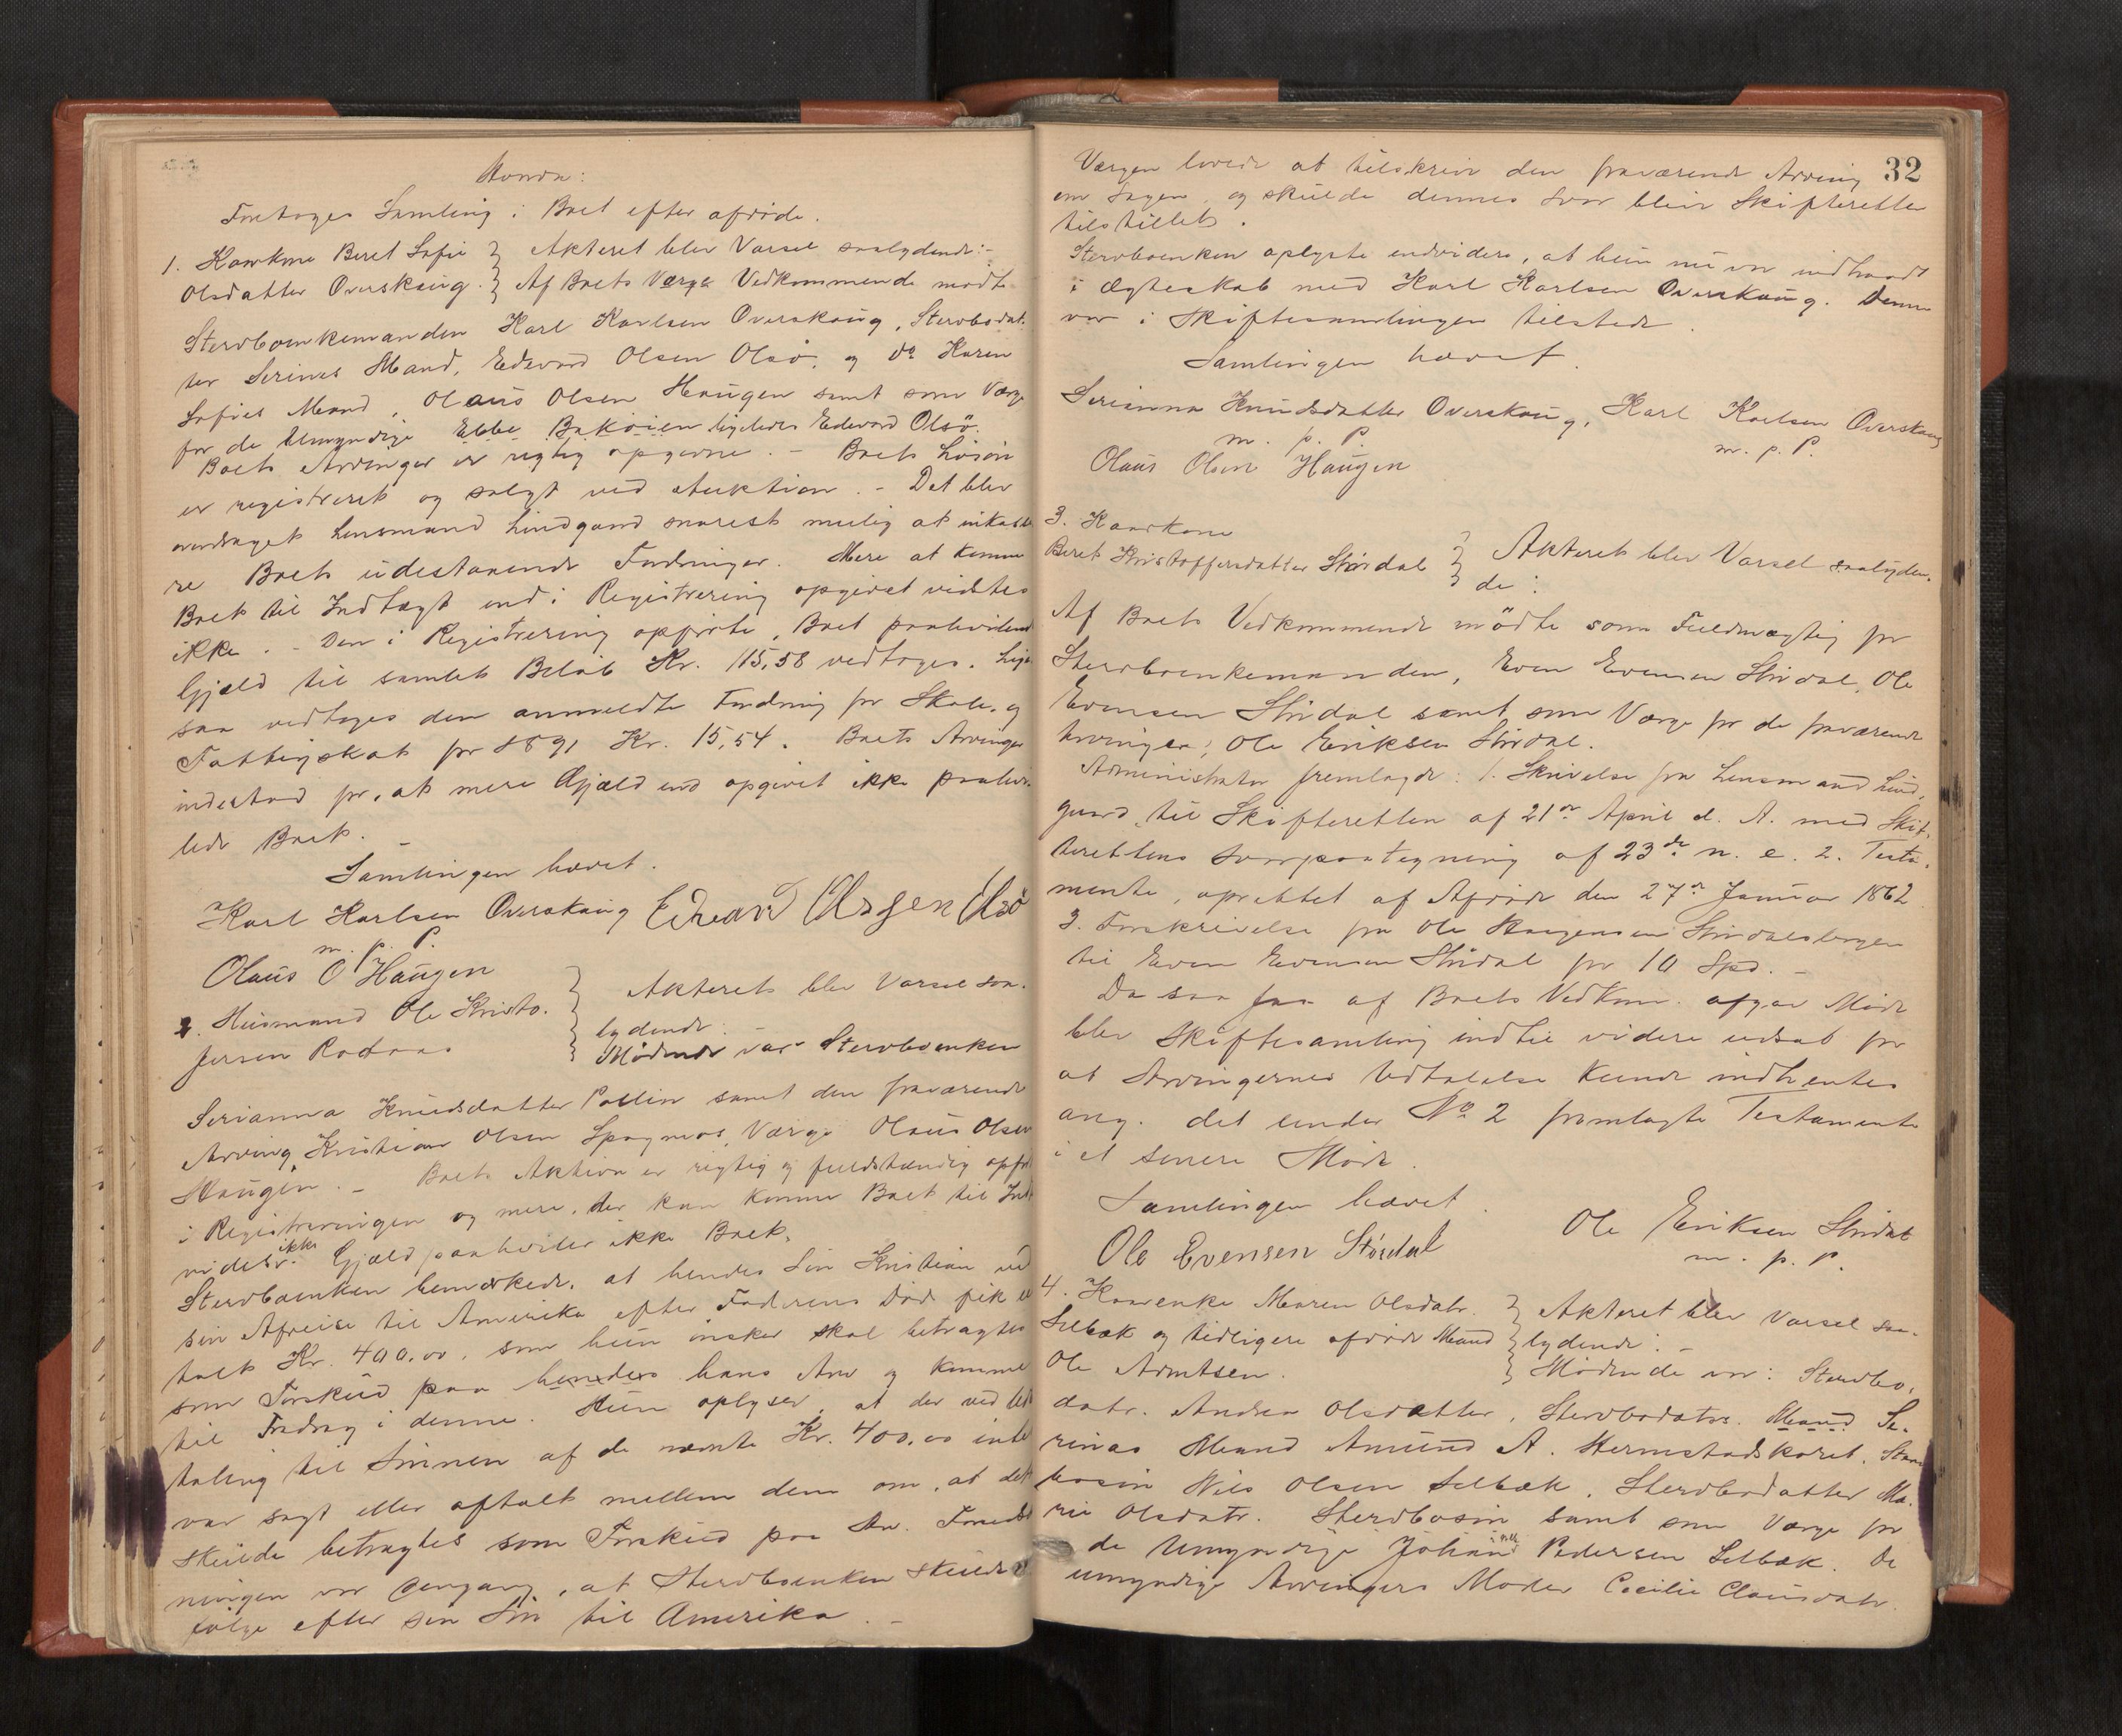 Hvorda:
Foretoges Samling i Boet efter afdøde.
1. Kaarkone Beret Sofie } Akteret blev Varsel saalydende:-
Olsdatter Overskaug. } Af Boets Værge Vedkommende mødte
Stervboenkemanden Karl Karlsen Overskaug, Stervbodat-
ter Serines Mand, Edevard Olsen Olsø, og do Karen
Sofies Mand, Olaus Olsen Haugen samt som Værge
for de Umyndige Ebbe Bakøien ligeledes Edevard Olsø.
Boets Arvinger er rigtig opgivne. - Boets Løsøre
er registreret og solgt ved Auktion. - Det blev
overdraget Lensmand Lindgaard snarest mulig at inkasse
re Boets udestaaende Fordringer. Mere at komme
Boet til Indtægt end i Registrering opgivet vidstes
ikke. - Den i Registrering opførte, Boet paahvilende
Gjæld til samlet Beløb Kr. 115,58 vedtoges. Lige
saa vedtoges den anmeldte Fordring for Skole- og
Fattigskat for 1891 Kr. 15,54. Boets Arvinger
indestod for, at mere Gjæld end opgivet ikke paahvi-
lede Boet.
Samlingen hævet.
Karl Karlsen Overskaug Edevard Olssen Olsø
m. p. P.
Olaus O Haugen
2. Husmand Ole Kristo- } Akteret blev Varsel saa-
fersen Rodaas } lydende.
Mødende var Stervboenken
Serianna Knudsdatter Pallin samt den fraværende
Arving Kristian Olsen Spogneas Værge Olaus Olsen
Haugen. - Boets Aktiva er rigtig og fuldstændig opført
i Registreringen og mere, der kan komme Boet til Indt
vides ikke. Gjæld paahviler ikke Boet.
Stervboenken bemærkede, at hendes Søn Kristian ved
sin Afreise til Amerika efter Faderens Død fik ud
talt Kr. 400,00, som hun ønsker skal betragtes
som Forskud paa hendes hans Arv og komme
til Fradrag i denne. Hun oplyser, at der ved Ud
taling til Sønnen af de nævnte Kr. 400,00 intet
var sagt eller aftalt mellem dem om, at det
skulde betragtes som Forskud paa Arv. Forud
ningen var dengang, at Stervboenken skulde
følge efter sin Søn til Amerika. -
32
Værgen lovede at tilskrive den fraværende Arving
om Sagen, og skulde dennes Svar blive Skifteretten
tilstillet.
Stervboenken oplyste endvidere, at hun nu var indtraadt
i Ægteskab med Karl Karlsen Overskaug. Denne
var i Skiftesamlingen tilstede.
Samlingen hævet.
Serianna Knudsdatter Overskaug, Karl Karlsen Overskaug
m. p. P. m. p. P.
Olaus Olsen Haugen
3. Kaarkone
Beret Kristoffersdatter Størdal } Akteret blev Varsel saalyden-
de:
Af Boets Vedkommende mödte som Fuldmægtig for
Stervboenkemanden, Even Evensen Størdal, Ole
Evensen Størdal samt som Værge for de fraværende
Arvinger, Ole Eriksen Størdal.
Administrator fremlagde: 1. Skrivelse fra Lensmand Lind-
gaard til Skifteretten af 21de April d. A. med Skif-
terettens Svarpaategning af 23de n. e. 2. Testa-
mente, oprettet af Afdøde den 27de Januar 1862
3. Forskrivelse fra Ole Haagensen Størdalsbergen
til Even Evensen Størdal for 10 Spd. -
Da saa faa af Boets Vedkom. afgav Møde
blev Skiftesamling indtil videre udsat for
at Arvingernes Udtalelse kunde indhentes
ang. det under No 2 fremlagte Testamente
i et senere Møde.
Samlingen hævet.
Ole Evensen Størdal Ole Eriksen Størdal
m. p. P.
4. Kaarenke Maren Olsdatr. } Akteret blev Varsel saa-
Selbæk og tidligere afdøde Mand } lydende: -
Ole Arntsen. } Mødende var: Stervbo-
datr. Andrea Olsdatter, Stervbodatrs. Mand Se-
rinas Mand Amund A. Hermstadskaret, Sterv
bosøn Nils Olsen Selbæk, Stervbodatter Ma-
rie Olsdatr. Stervbosøn samt som Værge for
de Umyndige Johan Pedersen Selbæk. De
umyndige Arvingers Moder Cecilie Clausdatr.